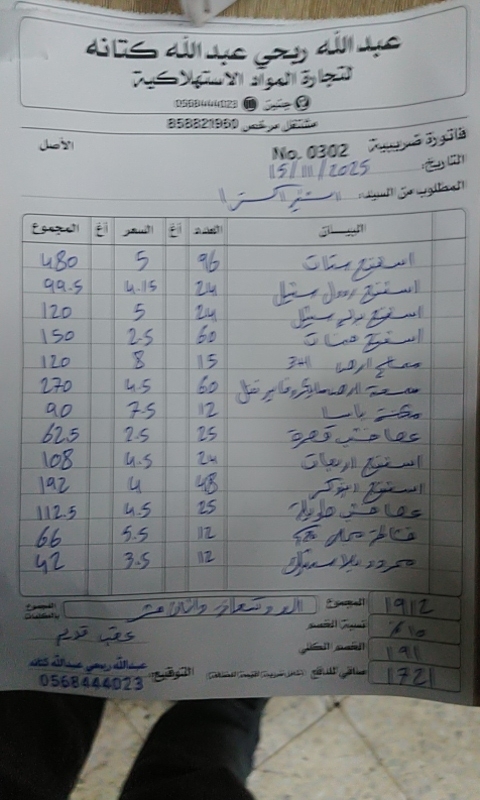 عبد الله ربحي عبد الله كتانه
لتجارة المواد الاستهلاكية
جنين 0568444023
مشتغل مرخص 858821960
فاتورة ضريبية No. 0302 الأصل
التاريخ: 15/11/2025
المطلوب من السيد: استيرا اكسترا
البيــان العدد أغ السعر أغ المجموع
اسفنج ستات 96 5 480
اسفنج رول ستيل 24 4.15 99.5
اسفنج ستيل 24 5 120
اسفنج حبات 60 2.5 150
ارضية 3+1 15 8 120
ممسحة ارضية مايكروفايبر 60 4.5 270
مكنسة 12 7.5 90
عصا خشب قصيرة 25 2.5 62.5
اسفنج اربعات 24 4.5 108
اسفنج 48 4 192
عصا خشب طويلة 25 4.5 112.5
12 5.5 66
مجرود بلاستيك 12 3.5 42
المجموع 1912 المجموع بالكلمات الف وتسعماية واثنا عشر
نسبة الخصم 10% عقب قديم
الخصم الكلي 191
صافي للدفع 1721 التوقيع: عبدالله ربحي عبدالله كتانه
0568444023